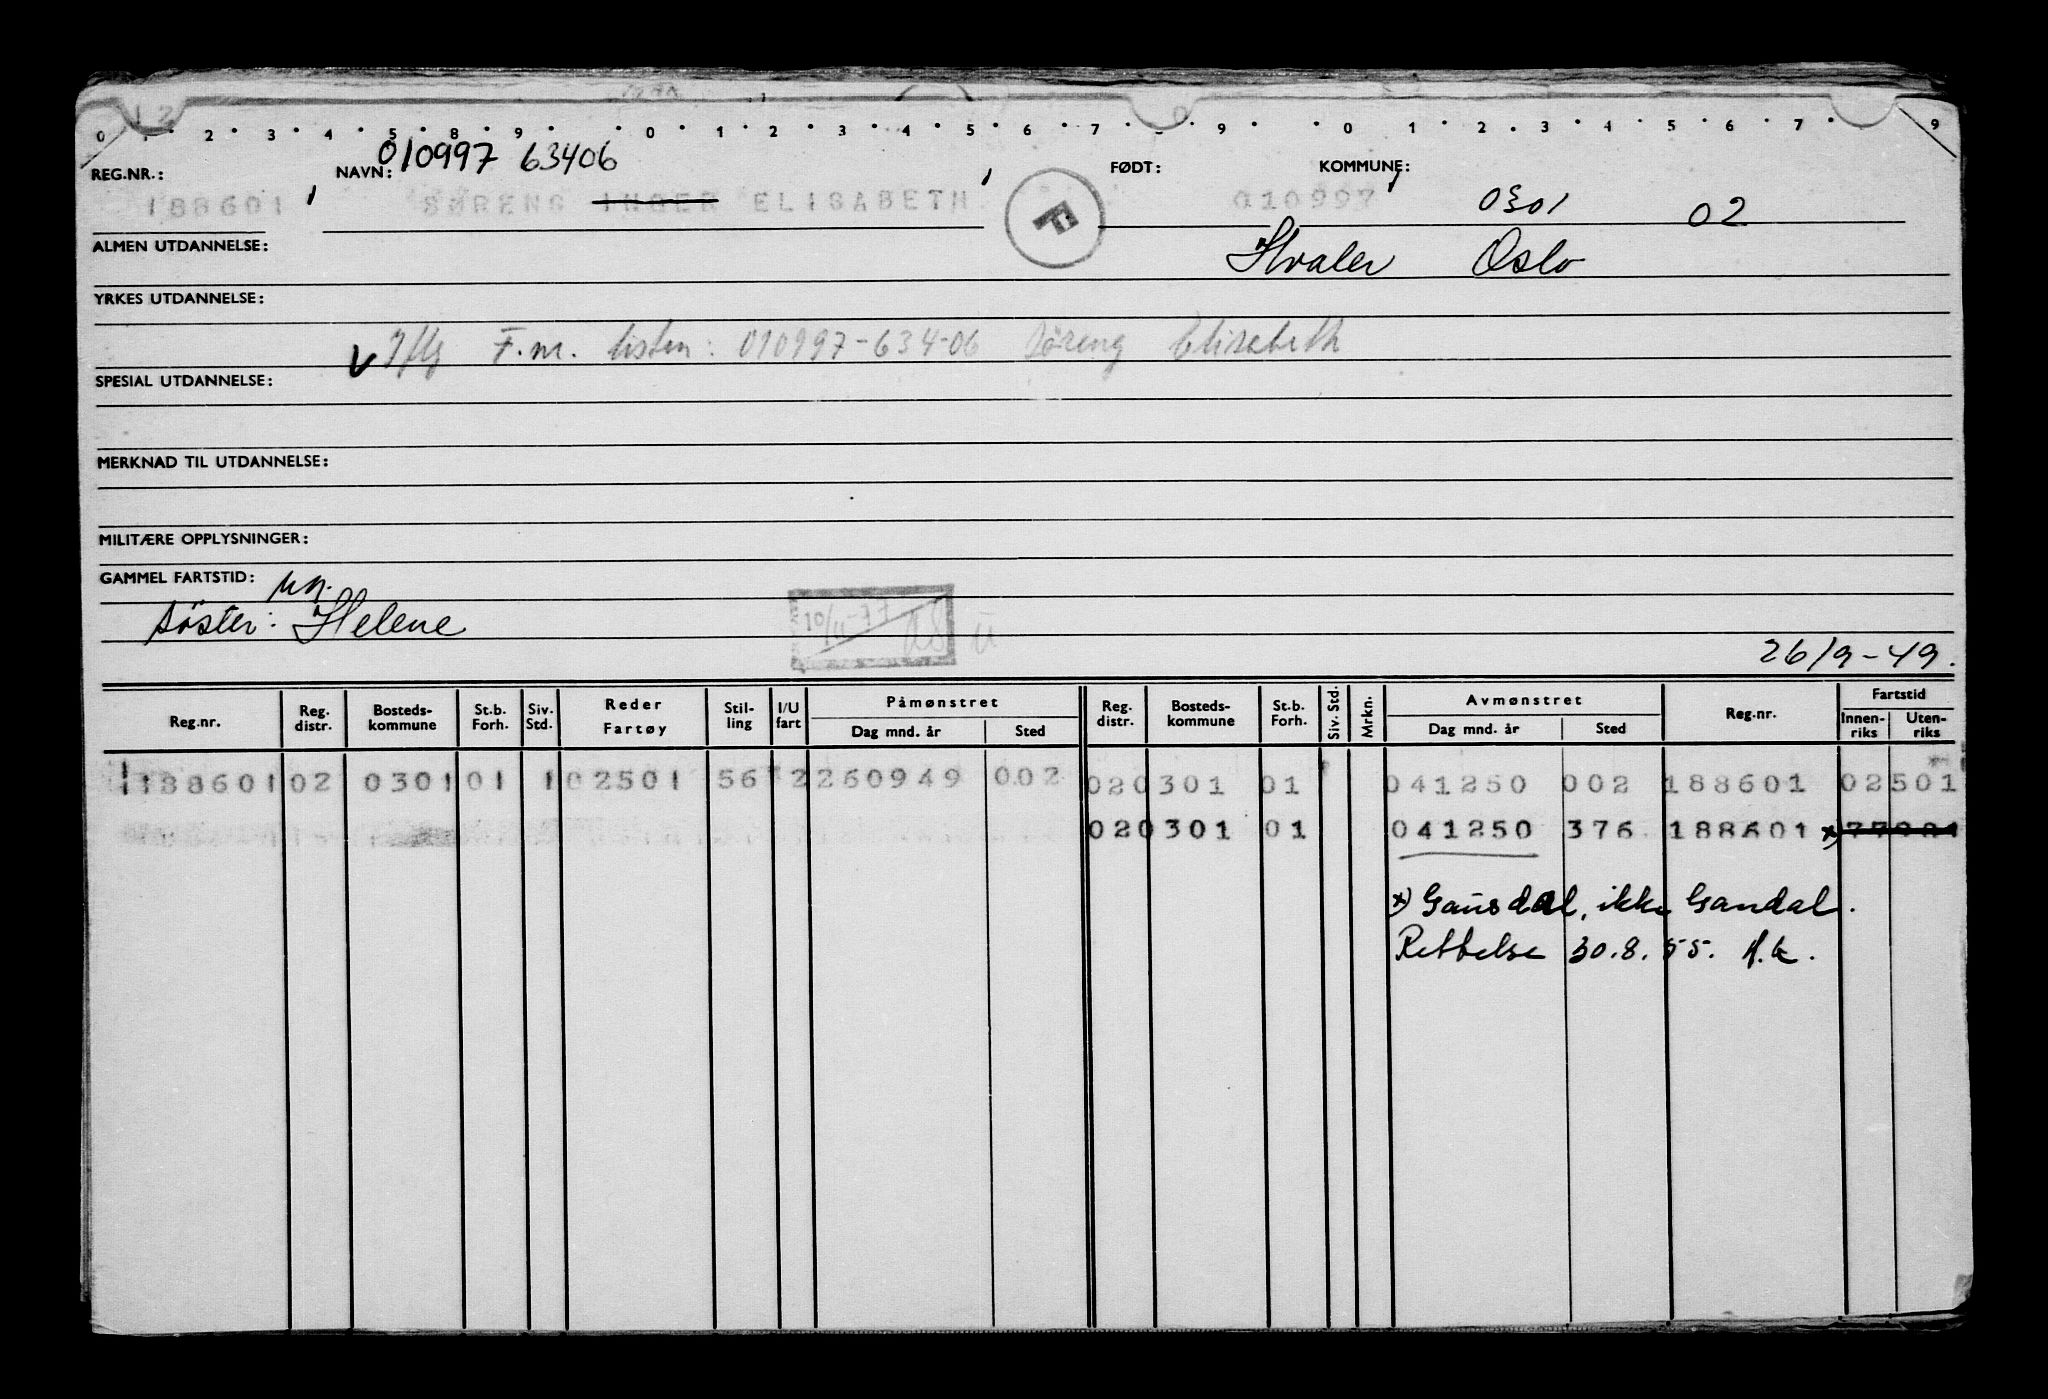 0 1 2 3 4 5 8 9 0 1 2 3 4 5 6 7 9 0 1 2 3 4 5 6 7 9
010997 63406
REG.NR.: NAVN: FØDT: KOMMUNE:
188601 SØRENG INGER ELISABETH F 010997 0301 02
ALMEN UTDANNELSE: Hvaler Oslo
YRKES UTDANNELSE:
Iflg F.m. listen: 010997-634-06 Søreng Elisabeth
SPESIAL UTDANNELSE:
MERKNAD TIL UTDANNELSE:
MILITÆRE OPPLYSNINGER:
GAMMEL FARTSTID:
søster: Helene 10/11-77
26/9-49.
Reg.nr. Reg. distr. Bosteds-kommune St.b. Forh. Siv. Std. Reder Fartøy Stil-ling I/U fart Påmønstret Dag mnd. år Sted Reg. distr. Bosteds-kommune St.b. Forh. Siv. Std. Mrkn. Avmønstret Dag mnd. år Sted Reg.nr. Fartstid Innen-riks Uten-riks
188601 02 0301 01 1 02501 56 2 260949 002 02 0301 01 041250 002 188601 02501
02 0301 01 041250 376 188601 x)
x) Gausdal, ikke Gandal.
Rettelse 30.8.55.